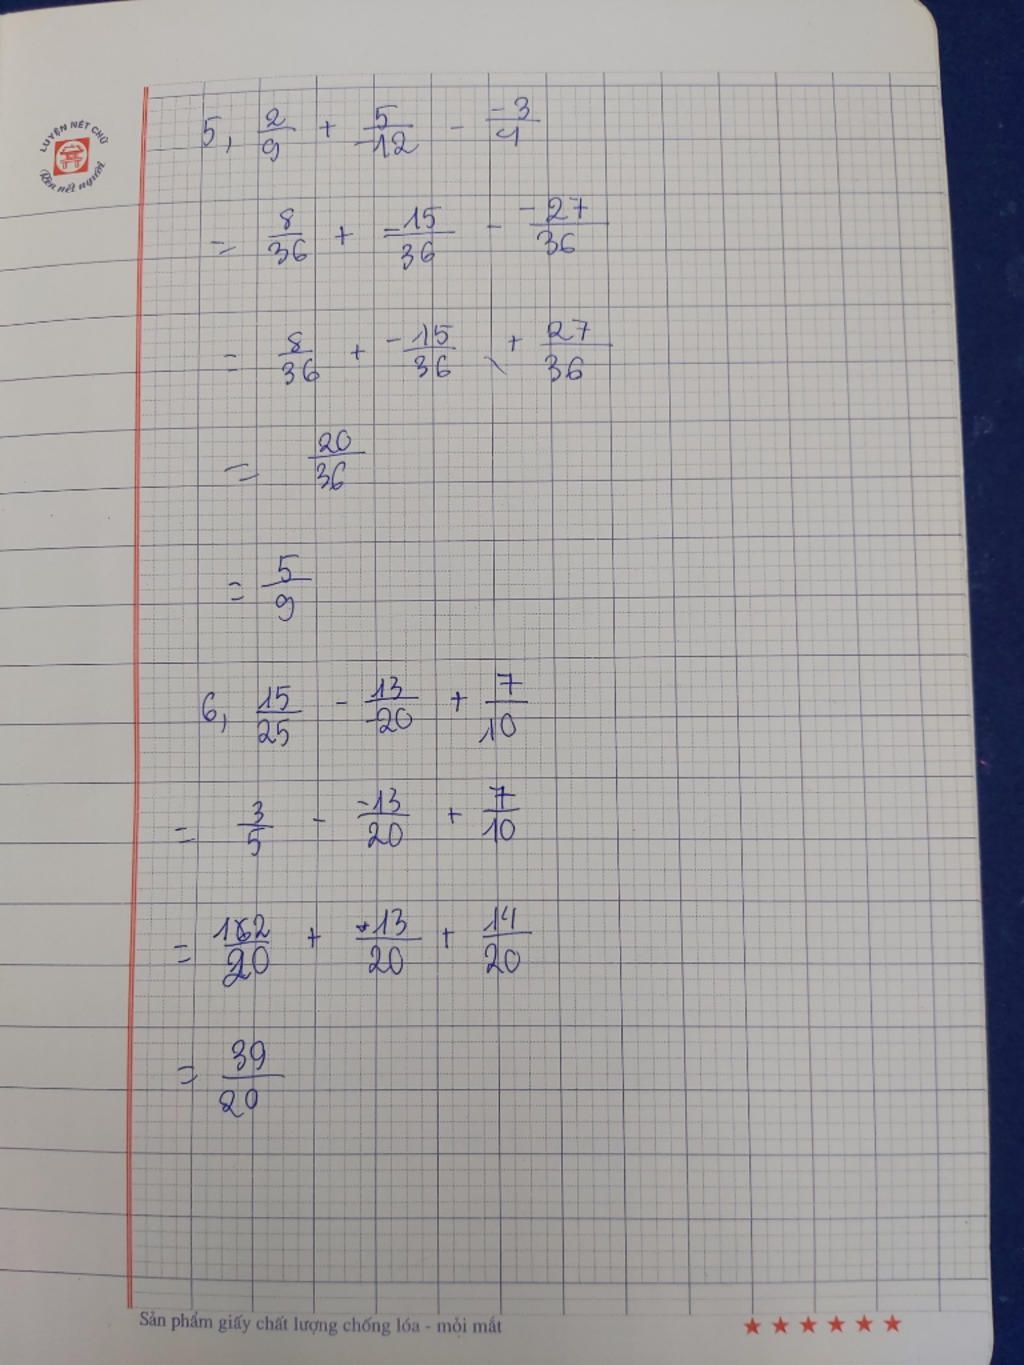 LUYỆN NÉT CHỮ
Rèn nết người
5, 2/9 + 5/-12 - -3/4
= 8/36 + -15/36 - -27/36
= 8/36 + -15/36 + 27/36
= 20/36
= 5/9
6, 15/25 - 13/-20 + 7/10
= 3/5 - -13/20 + 7/10
= 12/20 + +13/20 + 14/20
= 39/20
Sản phẩm giấy chất lượng chống lóa - mỏi mắt